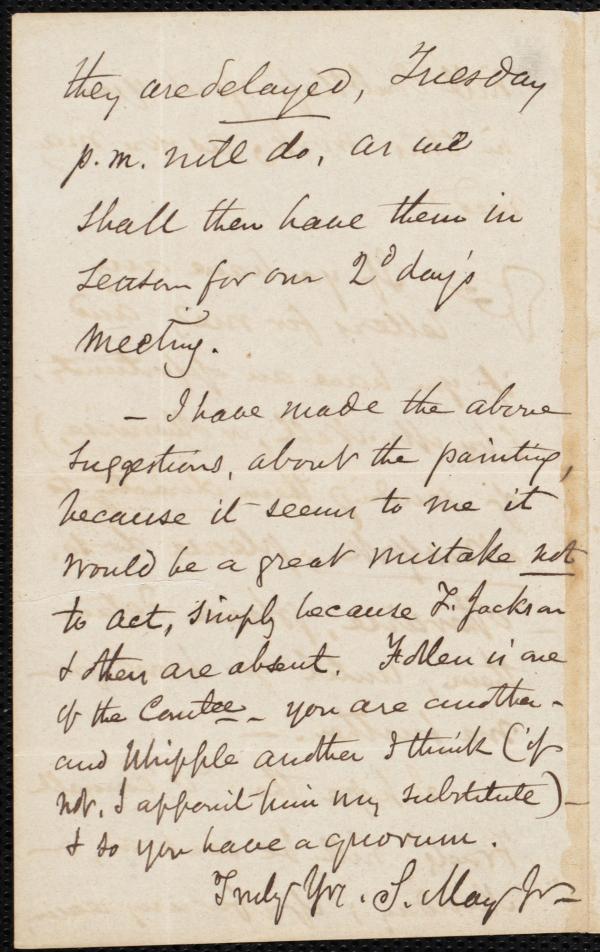 they are delayed, Tuesday
p.m. will do, as we
shall then have them in
season for our 2d day's
meeting.
– I have made the above
suggestions, about the painting,
because it seems to me it
would be a great mistake not
to act, simply because F. Jackson
& others are absent. Follen is one
of the Comtee – you are another –
and Whipple another I think (if
not, I appoint him my substitute) –
& so you have a quorum.
Truly Yrs. S. May Jr –